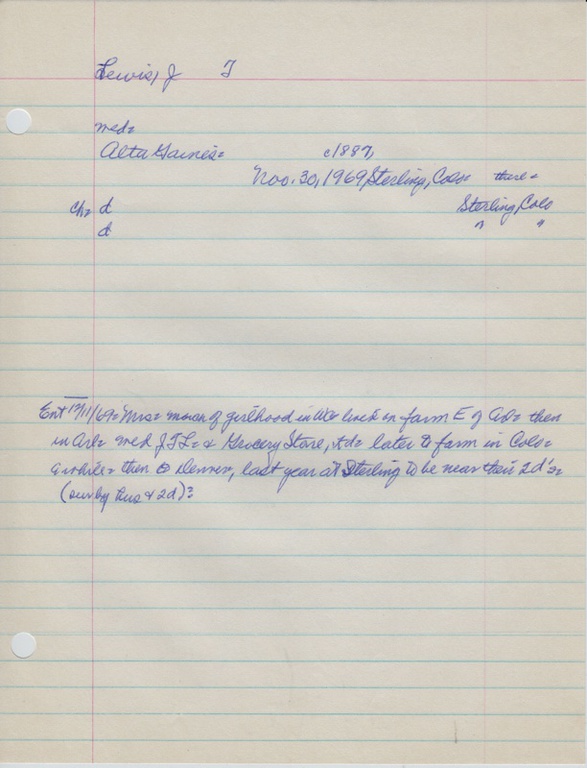 Lewis, J T
med=
Alta Gaines= c1887,
Nov. 30, 1969, Sterling, Colo= there=
Ch= d Sterling, Colo
d " "
Ent 12/11/69= Mrs= of girlhood in lived on farm E of then
in med J T L= & Grocery Store, later to farm in Colo=
awhile= then to Denver, last year at Sterling to be near their 2 d's=
(sur by hus & 2d)=